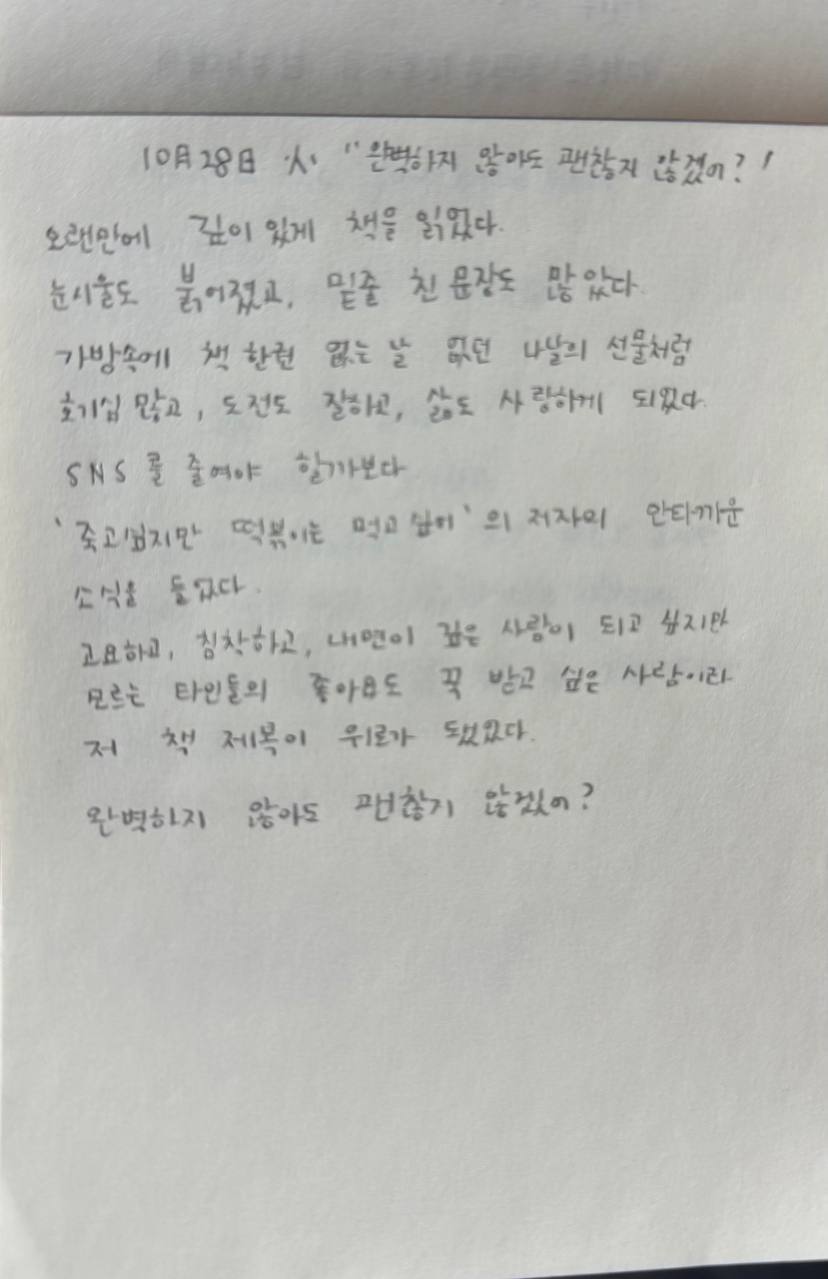 10月 28日 火 "완벽하지 않아도 괜찮지 않겠어?"
오랜만에 깊이 있게 책을 읽었다.
눈시울도 붉어졌고, 밑줄 친 문장도 많았다.
가방속에 책 한권 없는 날 없던 나날의 선물처럼
호기심 많고, 도전도 잘하고, 삶도 사랑하게 되었다.
SNS를 줄여야 할까보다
'죽고싶지만 떡볶이는 먹고싶어'의 저자의 안타까운
소식을 들었다.
고요하고, 침착하고, 내면이 깊은 사람이 되고 싶지만
모르는 타인들의 좋아요도 꾹 받고 싶은 사람이라
저 책 제목이 위로가 됐었다.
완벽하지 않아도 괜찮지 않겠어?